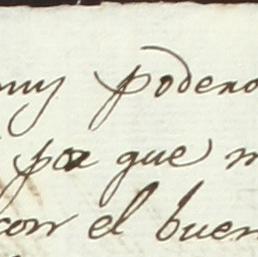 muy podero
por que m
con el buen